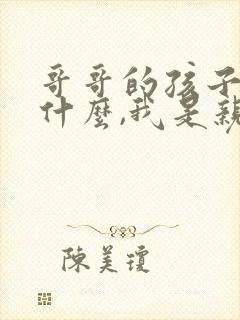 哥哥的孩子
什麼,我是親
陳美瓊